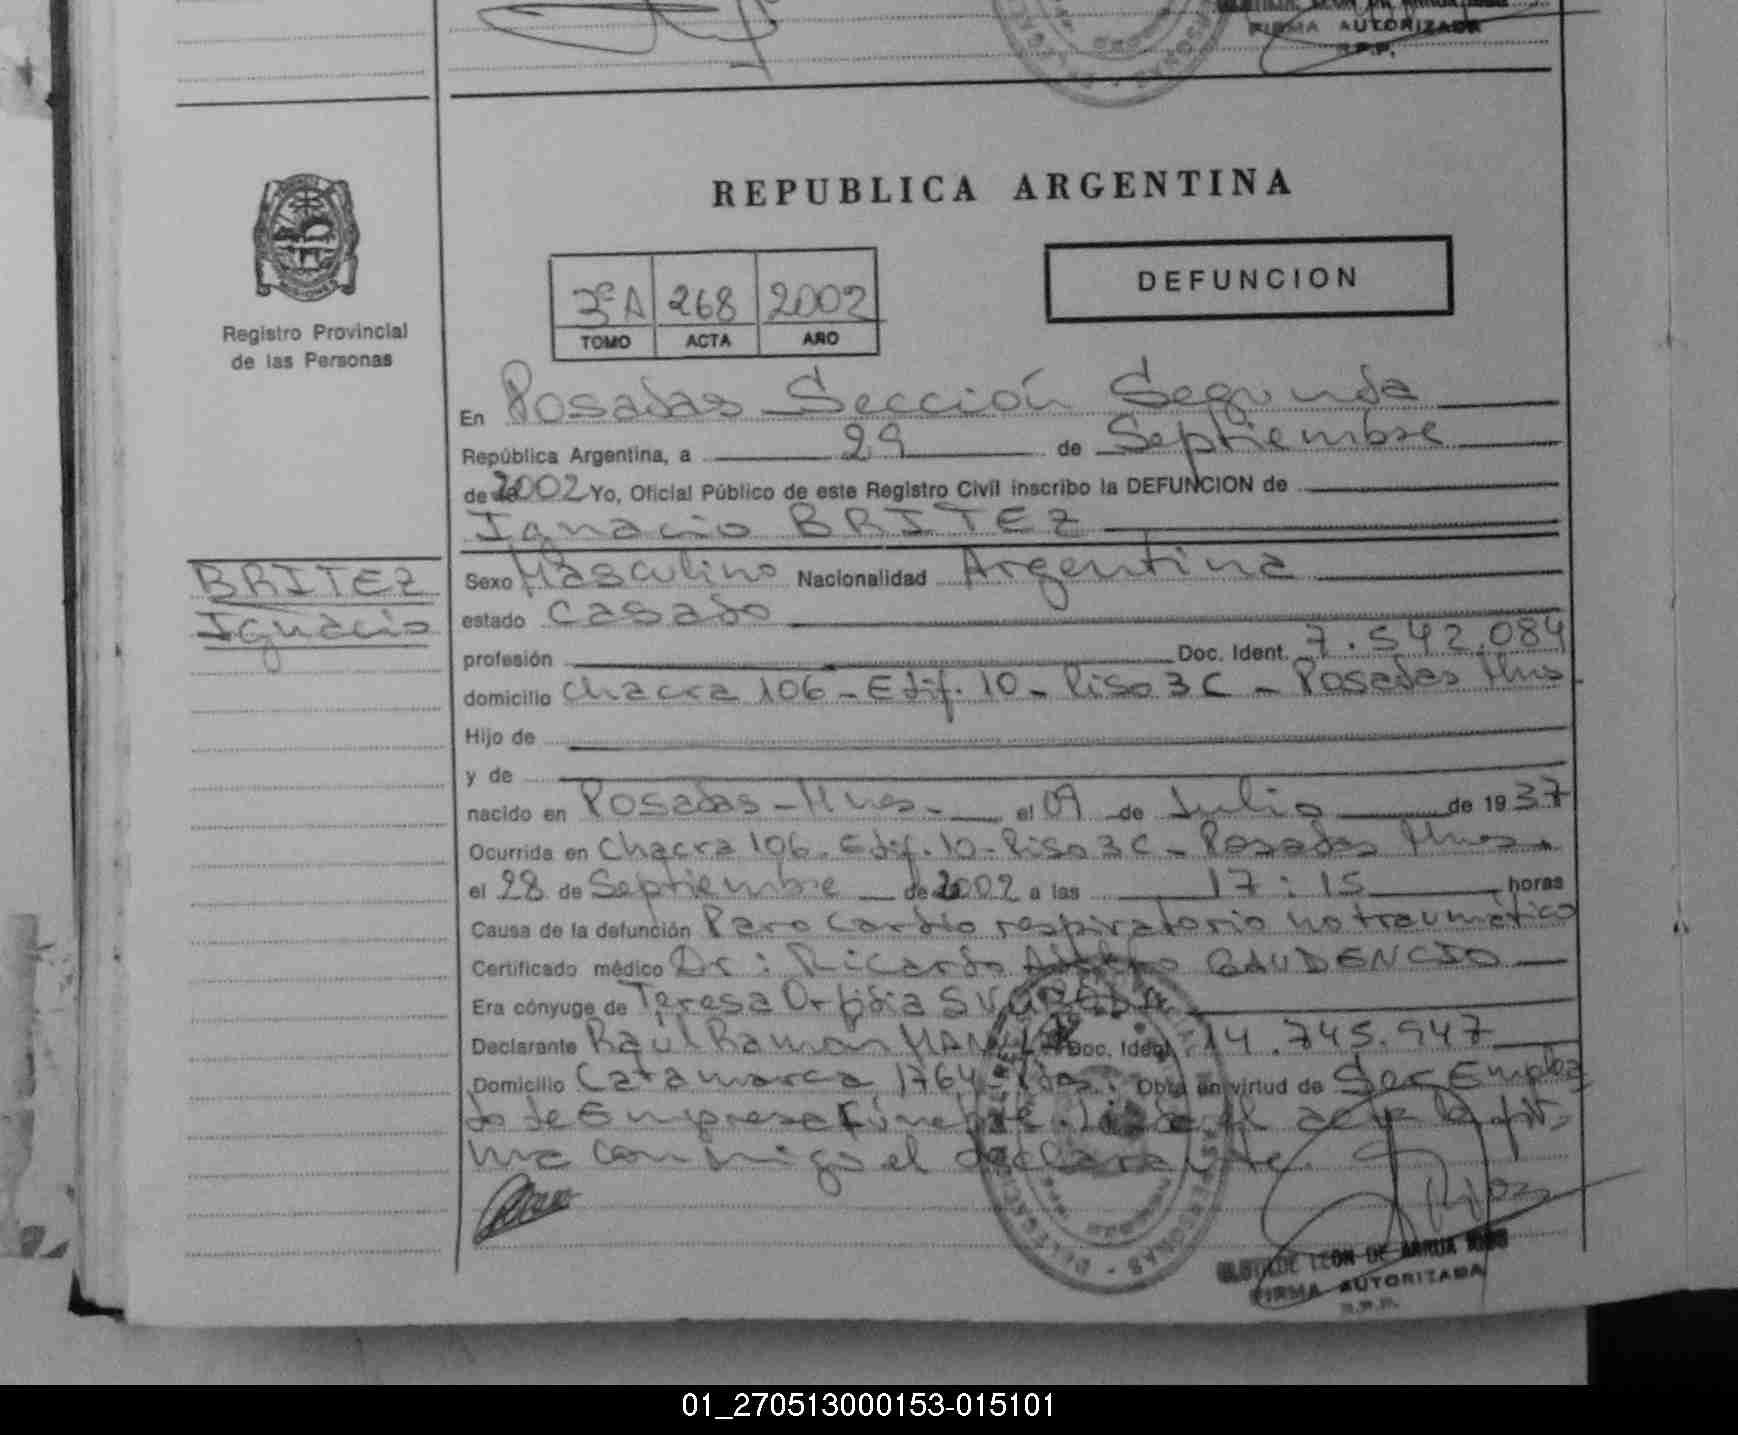 FIRMA AUTORIZADA
R.P.P.
REPUBLICA ARGENTINA
3º A 268 2002
TOMO ACTA AÑO
DEFUNCION
Registro Provincial
de las Personas
En Posadas Sección Segunda
República Argentina, a 29 de Septiembre
de 2002 Yo, Oficial Público de este Registro Civil inscribo la DEFUNCION de
Ignacio BRITEZ
BRITEZ
Ignacio
Sexo Masculino Nacionalidad Argentina
estado casado
profesión Doc. Ident. 7.542.084
domicilio chacra 106 - Edif. 10 - Piso 3 C - Posadas Mnes
Hijo de
y de
nacido en Posadas - Mnes - el 09 de Julio de 1937
Ocurrida en Chacra 106 - Edif. 10 - Piso 3 C - Posadas Mnes.
el 28 de Septiembre de 2002 a las 17:15 horas
Causa de la defunción Paro Cardio respiratorio no traumático
Certificado médico Dr: Ricardo GAUDENCIO
Era cónyuge de Teresa Orfidia
Declarante Raúl Ramón Doc. Ident. 14.745.947
Domicilio Catamarca 1764 Obra en virtud de Ser Emplea
do de Empresa Fúnebre. Leída el acta la fir
ma conmigo el declarante.
LEON DE
FIRMA AUTORIZADA
R.P.P.
01_270513000153-015101